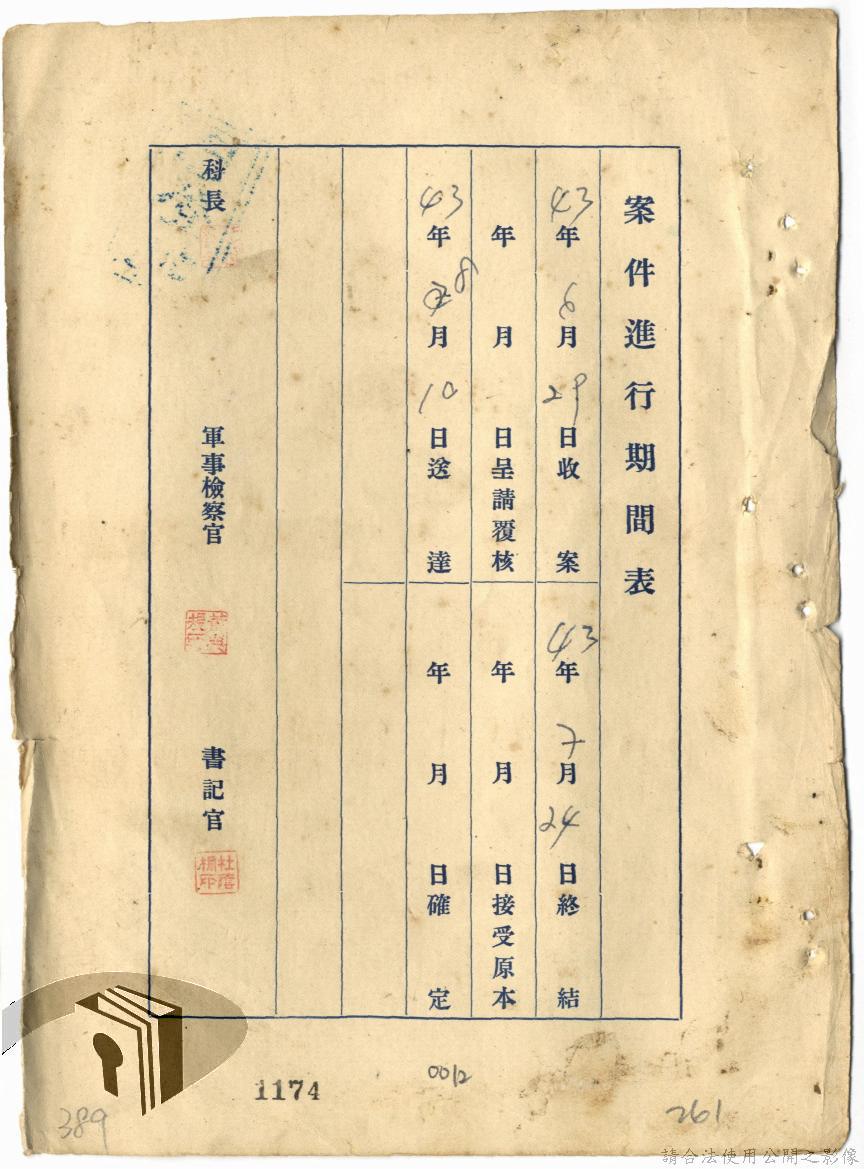 案件進行期間表
43年6月29日收案
43年7月24日終結
年月日呈請覆核
年月日接受原本
43年8月10日送達
年月日確定
科長
軍事檢察官
書記官
1174
0012
389
261
請合法使用公開之影像